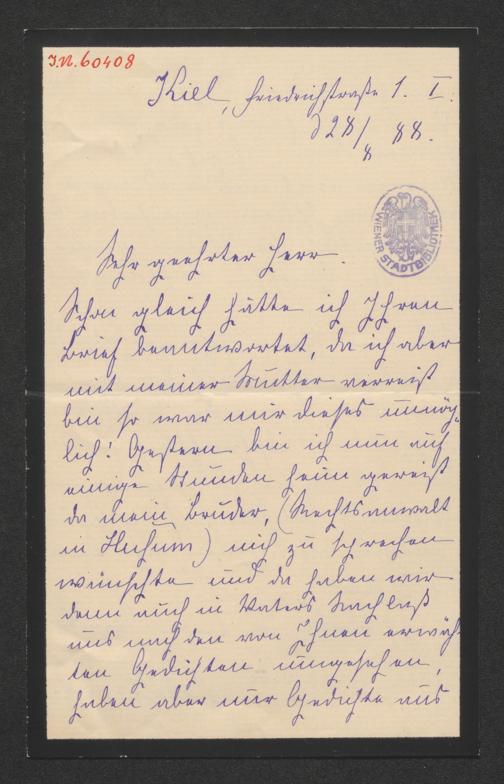 I.N. 60408
Kiel, Friedrichstraße 1. I.
d 28/8 88.
WIENER STADTBIBLIOTHEK
Sehr geehrter Herr.
Schon gleich hätte ich Ihren
Brief beantwortet, da ich aber
mit meiner Mutter verreist
bin so war mir dieses unmög-
lich! Gestern bin ich nun auf
einige Stunden heim gereist
da mein Bruder, (Rechtsanwalt
in Husum) mich zu sprechen
wünschte und da haben wir
denn auch in Vaters Nachlaß
uns nach den von Ihnen erwähn-
ten Gedichten umgesehen,
haben aber nur Gedichte aus